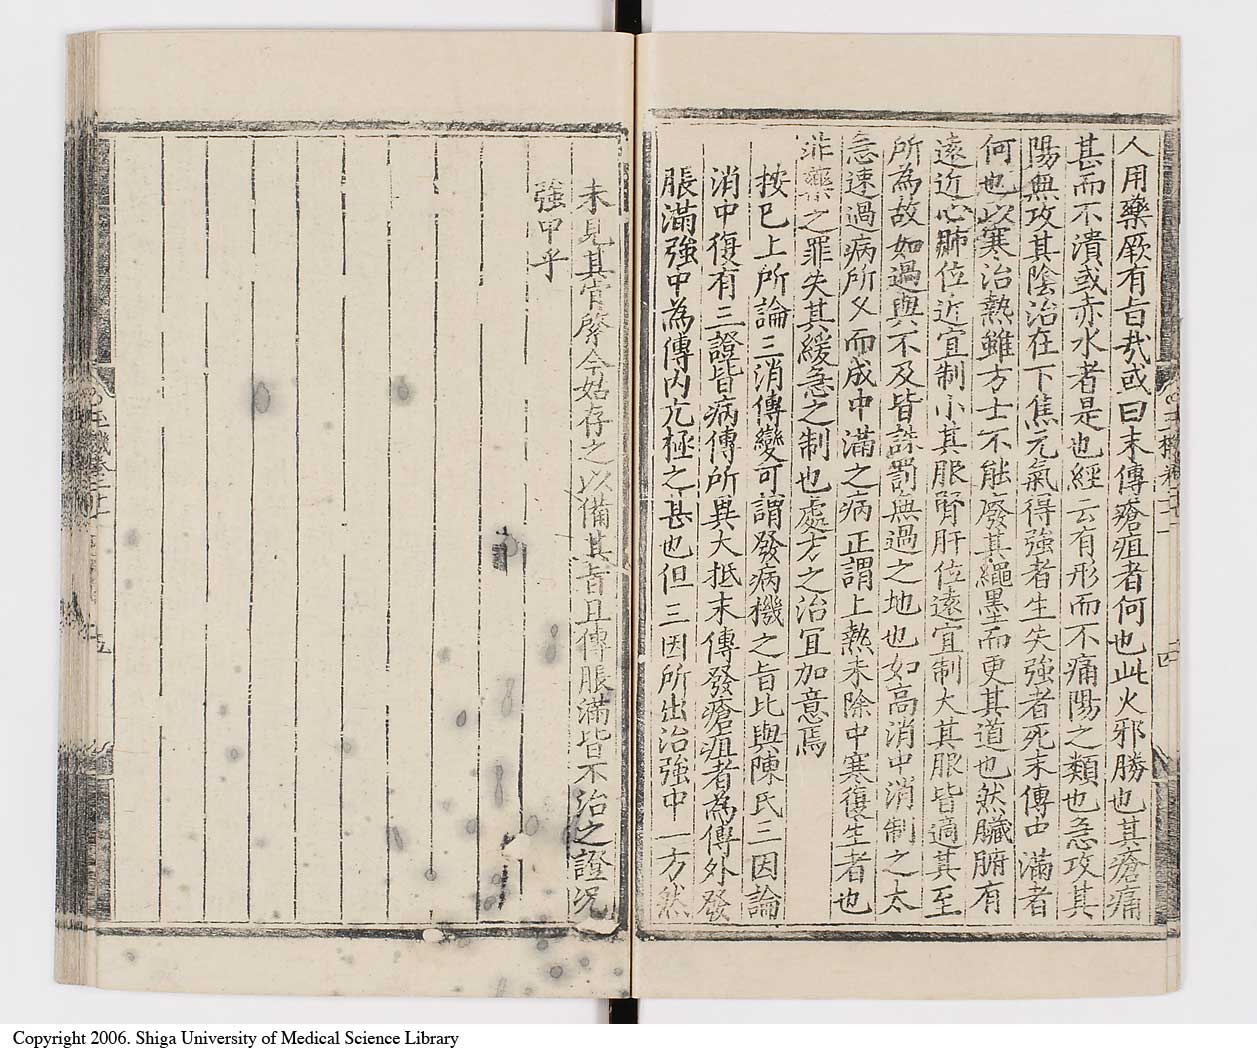 人用藥厥有旨哉或曰末傳瘡疽者何也此火邪勝也其瘡痛
甚而不潰或赤水者是也經云有形而不痛陽之類也急攻其
陽無攻其陰治在下焦元氣得強者生失強者死末傳中滿者
何也以寒治熱雖方士不能廢其繩墨而更其道也然臟腑有
遠近心肺位近宜制小其服腎肝位遠宜制大其服皆適其至
所為故如過與不及皆誅罰無過之地也如高消中消制之太
急速過病所久而成中滿之病正謂上熱未除中寒復生者也
非藥之罪失其緩急之制也處方之治冝加意焉
按已上所論三消傳變可謂發病機之旨比與陳氏三因論
消中復有三證皆病傳所異大抵末傳發瘡疽者為傳外發
脹滿強中為傳內亢極之甚也但三因所出治強中一方然
四
未見其肯綮今姑存之以備其旨且傳脹滿皆不治之證况
強中乎
五
Copyright 2006. Shiga University of Medical Science Library